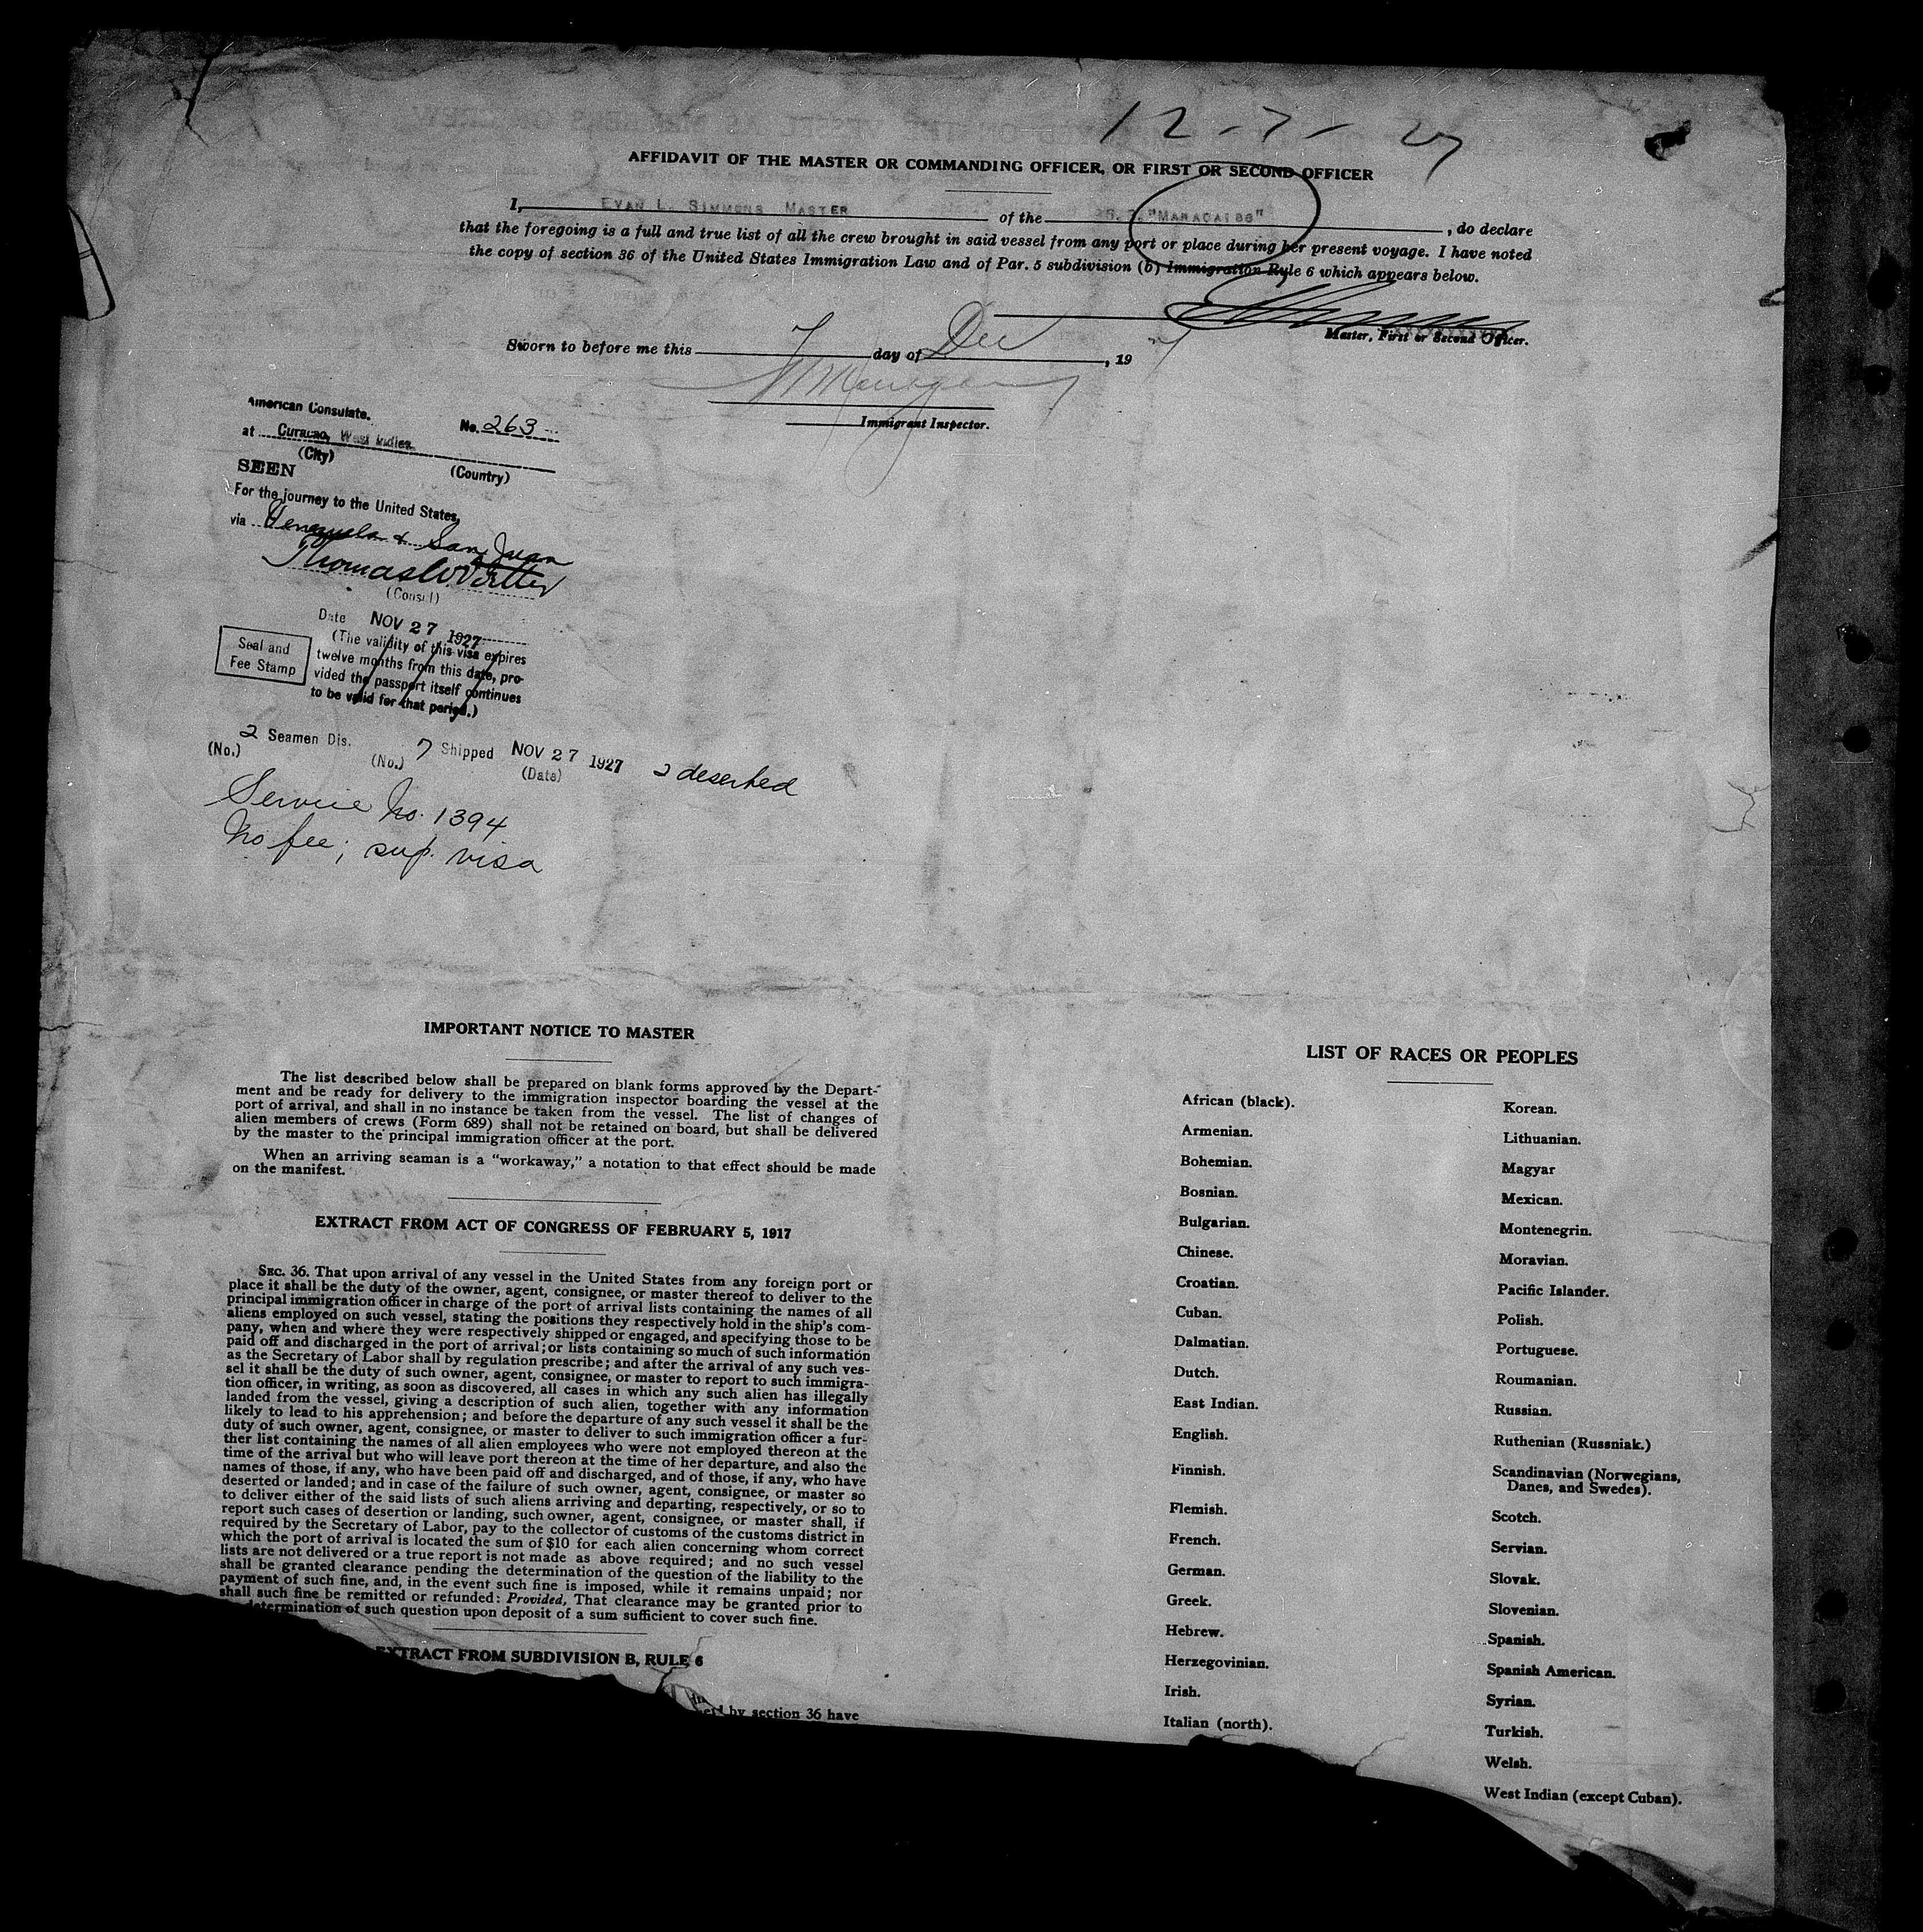 12-7-27
AFFIDAVIT OF THE MASTER OR COMMANDING OFFICER, OR FIRST OR SECOND OFFICER
I, EVAN L. SIMMONS MASTER of the S. S. "MARACAIBO" , do declare
that the foregoing is a full and true list of all the crew brought in said vessel from any port or place during her present voyage. I have noted
the copy of section 36 of the United States Immigration Law and of Par. 5 subdivision (b) Immigration Rule 6 which appears below.
Master, First or Second Officer.
Sworn to before me this 7 day of Dec , 19 27
Immigrant Inspector.
American Consulate.
No. 263
at Curacao, West Indies
(City) (Country)
SEEN
For the journey to the United States,
via Venezuela & San Juan
Thomas W.
(Consul)
Date NOV 27 1927
(The validity of this visa expires
twelve months from this date, pro-
vided the passport itself continues
to be valid for that period.)
Seal and
Fee Stamp
2 Seamen Dis. 7 Shipped NOV 27 1927 2 deserted
(No.) (No.) (Date)
Service No. 1394
No fee; sup. visa
IMPORTANT NOTICE TO MASTER
The list described below shall be prepared on blank forms approved by the Depart-
ment and be ready for delivery to the immigration inspector boarding the vessel at the
port of arrival, and shall in no instance be taken from the vessel. The list of changes of
alien members of crews (Form 689) shall not be retained on board, but shall be delivered
by the master to the principal immigration officer at the port.
When an arriving seaman is a "workaway," a notation to that effect should be made
on the manifest.
EXTRACT FROM ACT OF CONGRESS OF FEBRUARY 5, 1917
SEC. 36. That upon arrival of any vessel in the United States from any foreign port or
place it shall be the duty of the owner, agent, consignee, or master thereof to deliver to the
principal immigration officer in charge of the port of arrival lists containing the names of all
aliens employed on such vessel, stating the positions they respectively hold in the ship's com-
pany, when and where they were respectively shipped or engaged, and specifying those to be
paid off and discharged in the port of arrival; or lists containing so much of such information
as the Secretary of Labor shall by regulation prescribe; and after the arrival of any such ves-
sel it shall be the duty of such owner, agent, consignee, or master to report to such immigra-
tion officer, in writing, as soon as discovered, all cases in which any such alien has illegally
landed from the vessel, giving a description of such alien, together with any information
likely to lead to his apprehension; and before the departure of any such vessel it shall be the
duty of such owner, agent, consignee, or master to deliver to such immigration officer a fur-
ther list containing the names of all alien employees who were not employed thereon at the
time of the arrival but who will leave port thereon at the time of her departure, and also the
names of those, if any, who have been paid off and discharged, and of those, if any, who have
deserted or landed; and in case of the failure of such owner, agent, consignee, or master so
to deliver either of the said lists of such aliens arriving and departing, respectively, or so to
report such cases of desertion or landing, such owner, agent, consignee, or master shall, if
required by the Secretary of Labor, pay to the collector of customs of the customs district in
which the port of arrival is located the sum of $10 for each alien concerning whom correct
lists are not delivered or a true report is not made as above required; and no such vessel
shall be granted clearance pending the determination of the question of the liability to the
payment of such fine, and, in the event such fine is imposed, while it remains unpaid; nor
shall such fine be remitted or refunded: Provided, That clearance may be granted prior to
determination of such question upon deposit of a sum sufficient to cover such fine.
EXTRACT FROM SUBDIVISION B, RULE 6
by section 36 have
LIST OF RACES OR PEOPLES
African (black).
Armenian.
Bohemian.
Bosnian.
Bulgarian.
Chinese.
Croatian.
Cuban.
Dalmatian.
Dutch.
East Indian.
English.
Finnish.
Flemish.
French.
German.
Greek.
Hebrew.
Herzegovinian.
Irish.
Italian (north).
Korean.
Lithuanian.
Magyar
Mexican.
Montenegrin.
Moravian.
Pacific Islander.
Polish.
Portuguese.
Roumanian.
Russian.
Ruthenian (Russniak.)
Scandinavian (Norwegians,
Danes, and Swedes).
Scotch.
Servian.
Slovak.
Slovenian.
Spanish.
Spanish American.
Syrian.
Turkish.
Welsh.
West Indian (except Cuban).